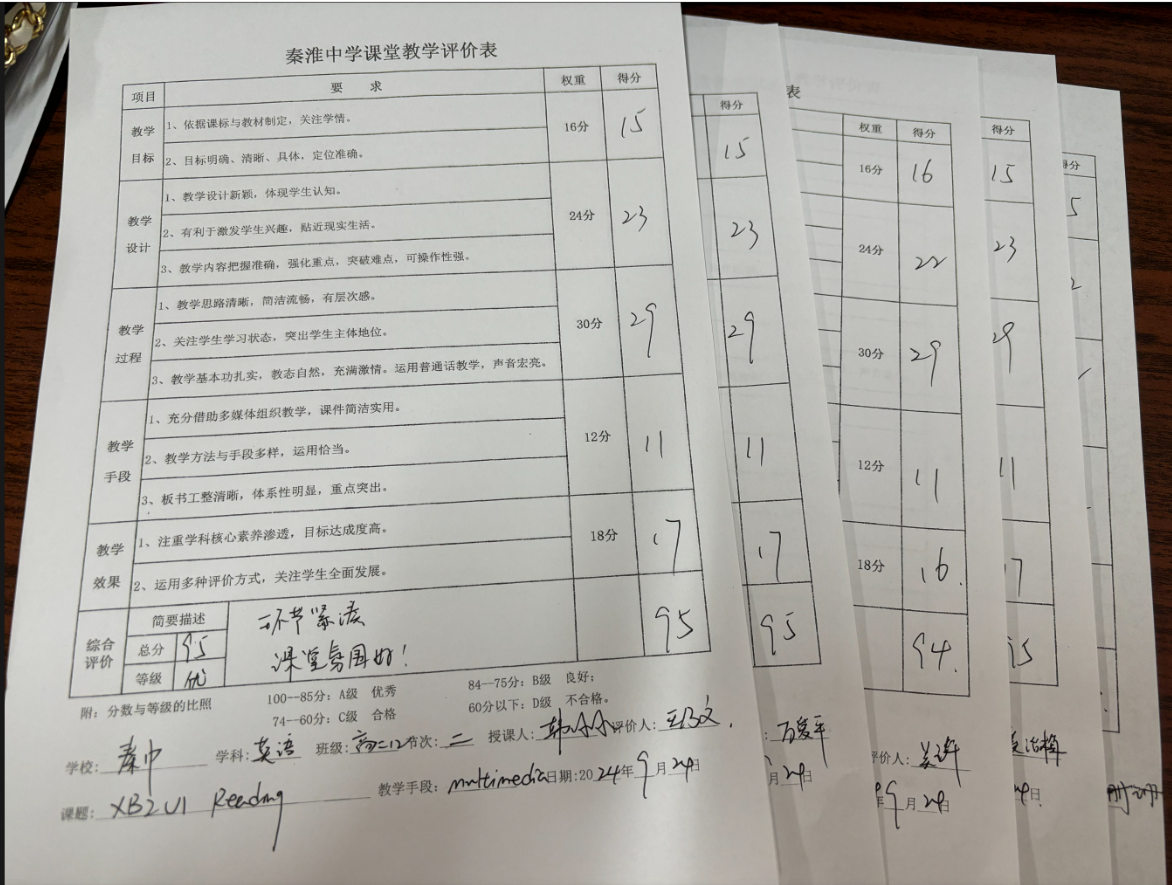 秦淮中学课堂教学评价表
项目 要 求 权重 得分
教学目标 1、依据课标与教材制定，关注学情。 16分 15
2、目标明确、清晰、具体，定位准确。
教学设计 1、教学设计新颖，体现学生认知。 24分 23
2、有利于激发学生兴趣，贴近现实生活。
3、教学内容把握准确，强化重点，突破难点，可操作性强。
教学过程 1、教学思路清晰，简洁流畅，有层次感。 30分 29
2、关注学生学习状态，突出学生主体地位。
3、教学基本功扎实，教态自然，充满激情。运用普通话教学，声音宏亮。
教学手段 1、充分借助多媒体组织教学，课件简洁实用。 12分 11
2、教学方法与手段多样，运用恰当。
3、板书工整清晰，体系性明显，重点突出。
教学效果 1、注重学科核心素养渗透，目标达成度高。 18分 17
2、运用多种评价方式，关注学生全面发展。
综合评价 简要描述 环节紧凑 95
总分 95 课堂氛围好！
等级 优
附：分数与等级的比照 100—85分：A级 优秀 84—75分：B级 良好；
74—60分：C级 合格 60分以下：D级 不合格。
学校：秦中 学科：英语 班级：高二12 节次：二 授课人： 评价人：
课题：XB2U1 Reading 教学手段：multimedia 日期：2024年9月24日
得分
15
23
29
11
17
95
月24日
表
权重 得分
16分 16
24分 22
30分 29
12分 11
18分 16.
94.
评价人：
年9月24日
得分
15
23
29
11
17
95
24日
得分
5
2